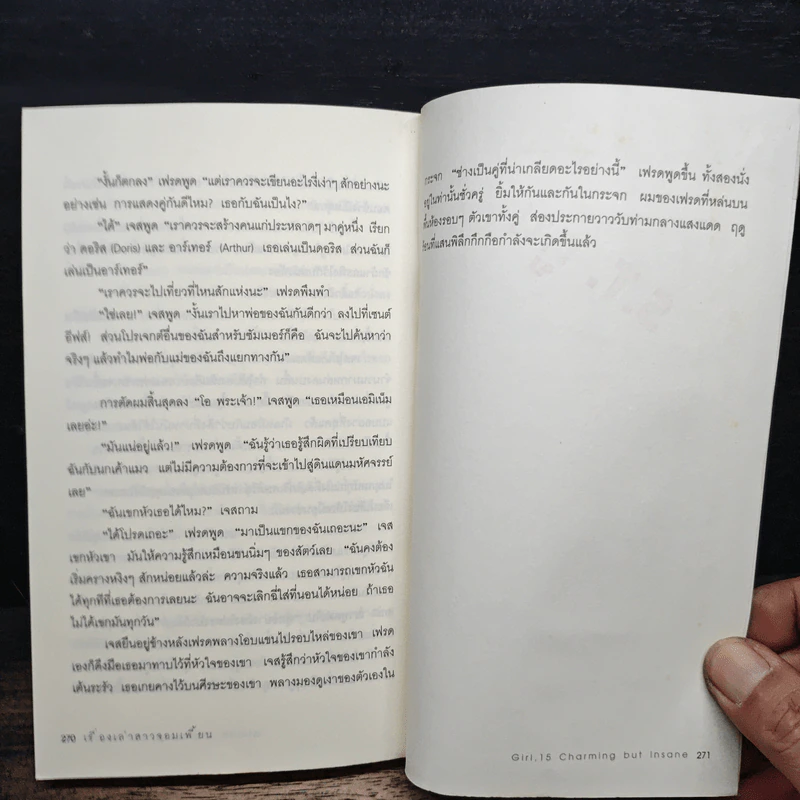 “งั้นก็ตกลง” เฟรดพูด “แต่เราควรจะเขียนอะไรงี่เง่าๆ สักอย่างนะ
อย่างเช่น การแสดงคู่กันดีไหม? เธอกับฉันเป็นไง?”
“ได้” เจสพูด “เราควรจะสร้างคนแก่ประหลาดๆ มาคู่หนึ่ง เรียก
ว่า ดอริส (Doris) และ อาร์เทอร์ (Arthur) เธอเล่นเป็นดอริส ส่วนฉันก็
เล่นเป็นอาร์เทอร์”
“เราควรจะไปเที่ยวที่ไหนสักแห่งนะ” เฟรดพึมพำ
“ใช่เลย!” เจสพูด “งั้นเราไปหาพ่อของฉันกันดีกว่า ลงไปที่เซนต์
อีฟส์! ส่วนโปรเจกต์อื่นของฉันสำหรับซัมเมอร์ก็คือ ฉันจะไปค้นหาว่า
จริงๆ แล้วทำไมพ่อกับแม่ของฉันถึงแยกทางกัน”
การตัดผมสิ้นสุดลง “โอ พระเจ้า!” เจสพูด “เธอเหมือนเอมิเน็ม
เลยอ่ะ!”
“มันแน่อยู่แล้ว!” เฟรดพูด “ฉันรู้ว่าเธอรู้สึกผิดที่เปรียบเทียบ
ฉันกับนกเค้าแมว แต่ไม่มีความต้องการที่จะเข้าไปสู่ดินแดนมหัศจรรย์
เลย”
“ฉันเขกหัวเธอได้ไหม?” เจสถาม
“ได้โปรดเถอะ” เฟรดพูด “มาเป็นแขกของฉันเถอะนะ” เจส
เขกหัวเขา มันให้ความรู้สึกเหมือนขนนิ่มๆ ของสัตว์เลย “ฉันคงต้อง
เริ่มครางหงิงๆ สักหน่อยแล้วล่ะ ความจริงแล้ว เธอสามารถเขกหัวฉัน
ได้ทุกทีที่เธอต้องการเลยนะ ฉันอาจจะเลิกฉี่ใส่ที่นอนได้หน่อย ถ้าเธอ
ไม่ได้เขกมันทุกวัน”
เจสยืนอยู่ข้างหลังเฟรดพลางโอบแขนไปรอบไหล่ของเขา เฟรด
เองก็ดึงมือเธอมาทาบไว้ที่หัวใจของเขา เจสรู้สึกว่าหัวใจของเขากำลัง
เต้นระรัว เธอเกยคางไว้บนศีรษะของเขา พลางมองดูเงาของตัวเองใน
270 เรื่องเล่าสาวจอมเพี้ยน
กระจก “ช่างเป็นคู่ที่น่าเกลียดอะไรอย่างนี้” เฟรดพูดขึ้น ทั้งสองนั่ง
อยู่ในท่านั้นชั่วครู่ ยิ้มให้กันและกันในกระจก ผมของเฟรดที่หล่นบน
พื้นห้องรอบๆ ตัวเขาทั้งคู่ ส่องประกายวาววับท่ามกลางแสงแดด ฤดู
ร้อนที่แสนพิลึกกึกกือกำลังจะเกิดขึ้นแล้ว
Girl,15 Charming but Insane 271